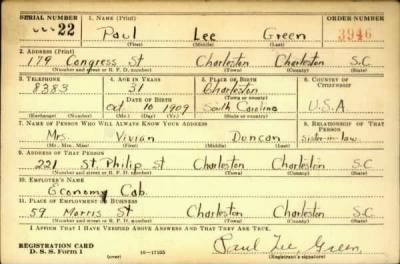 SERIAL NUMBER 1. NAME (Print) ORDER NUMBER
22 Paul Lee Green 3946
(First) (Middle) (Last)
2. ADDRESS (Print)
179 Congress St Charleston Charleston S.C
(Number and street or R. F. D. number) (Town) (County) (State)
3. TELEPHONE 4. AGE IN YEARS 5. PLACE OF BIRTH 6. COUNTRY OF CITIZENSHIP
8383 31 Charleston
DATE OF BIRTH (Town or county)
Oct 10 1909 South Carolina U.S.A
(Exchange) (Number) (Mo.) (Day) (Yr.) (State or country)
7. NAME OF PERSON WHO WILL ALWAYS KNOW YOUR ADDRESS 8. RELATIONSHIP OF THAT PERSON
Mrs. Vivian Duncan Sister-in law
(Mr., Mrs., Miss) (First) (Middle) (Last)
9. ADDRESS OF THAT PERSON
221 St. Philip St Charleston Charleston S.C
(Number and street or R. F. D. number) (Town) (County) (State)
10. EMPLOYER'S NAME
Economy Cab.
11. PLACE OF EMPLOYMENT OR BUSINESS
59 Morris St Charleston Charleston S.C
(Number and street or R. F. D. number) (Town) (County) (State)
I AFFIRM THAT I HAVE VERIFIED ABOVE ANSWERS AND THAT THEY ARE TRUE.
REGISTRATION CARD
D. S. S. Form 1 16—17105 Paul Lee Green
(over) (Registrant's signature)